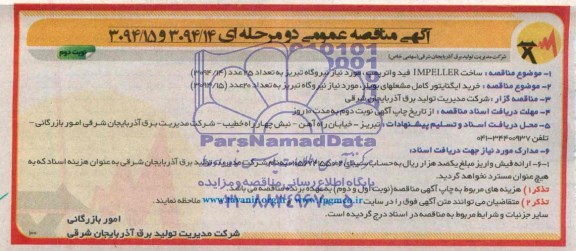 آگهی مناقصه عمومی دو مرحله ای ۳۰۹۴/۱۴ و ۳۰۹۴/۱۵
نوبت دوم
شرکت مدیریت تولید برق آذربایجان شرقی (سهامی خاص)
۱- موضوع مناقصه : ساخت IMPELLER فید واتر پمپ ، مورد نیاز نیروگاه تبریز به تعداد ۲۵ عدد (۳۰۹۴/۱۴)
۲- موضوع مناقصه : خرید ایگنایتور کامل مشعلهای بویلر، مورد نیاز نیروگاه تبریز به تعداد ۲۰ عدد (۳۰۹۴/۱۵)
۳- مناقصه گزار : شرکت مدیریت تولید برق آذربایجان شرقی
۴- مهلت دریافت اسناد : از تاریخ چاپ آگهی نوبت دوم به مدت ۱۰ روز
۵- محل دریافت اسناد و تسلیم پیشنهادات : تبریز - خیابان راه آهن - نبش چهارراه خطیب - شرکت مدیریت برق آذربایجان شرقی امور بازرگانی -
تلفن
۶- مدارک مورد نیاز جهت دریافت اسناد:
۱-۶- ارائه فیش واریز مبلغ یکصد هزار ریال به حساب شرکت مدیریت تولید برق آذربایجان شرقی به عنوان هزینه اسناد که به
هیچ عنوان مسترد نخواهد گردید.
تذکر ۱) هزینه های مربوط به چاپ آگهی مناقصه (نوبت اول و دوم) به عهده برنده مناقصه می باشد.
تذکر ۲) متقاضیان می توانند متن آگهی فوق را در سایت ملاحظه نمایند.
سایر جزئیات و شرایط مربوط به مناقصه در اسناد درج گردیده است.
امور بازرگانی
شرکت مدیریت تولید برق آذربایجان شرقی
ParsNamadData
پایگاه اطلاع رسانی مناقصه و مزایده
۰۲۱-۸۸۳۴۹۶۷۰-۵